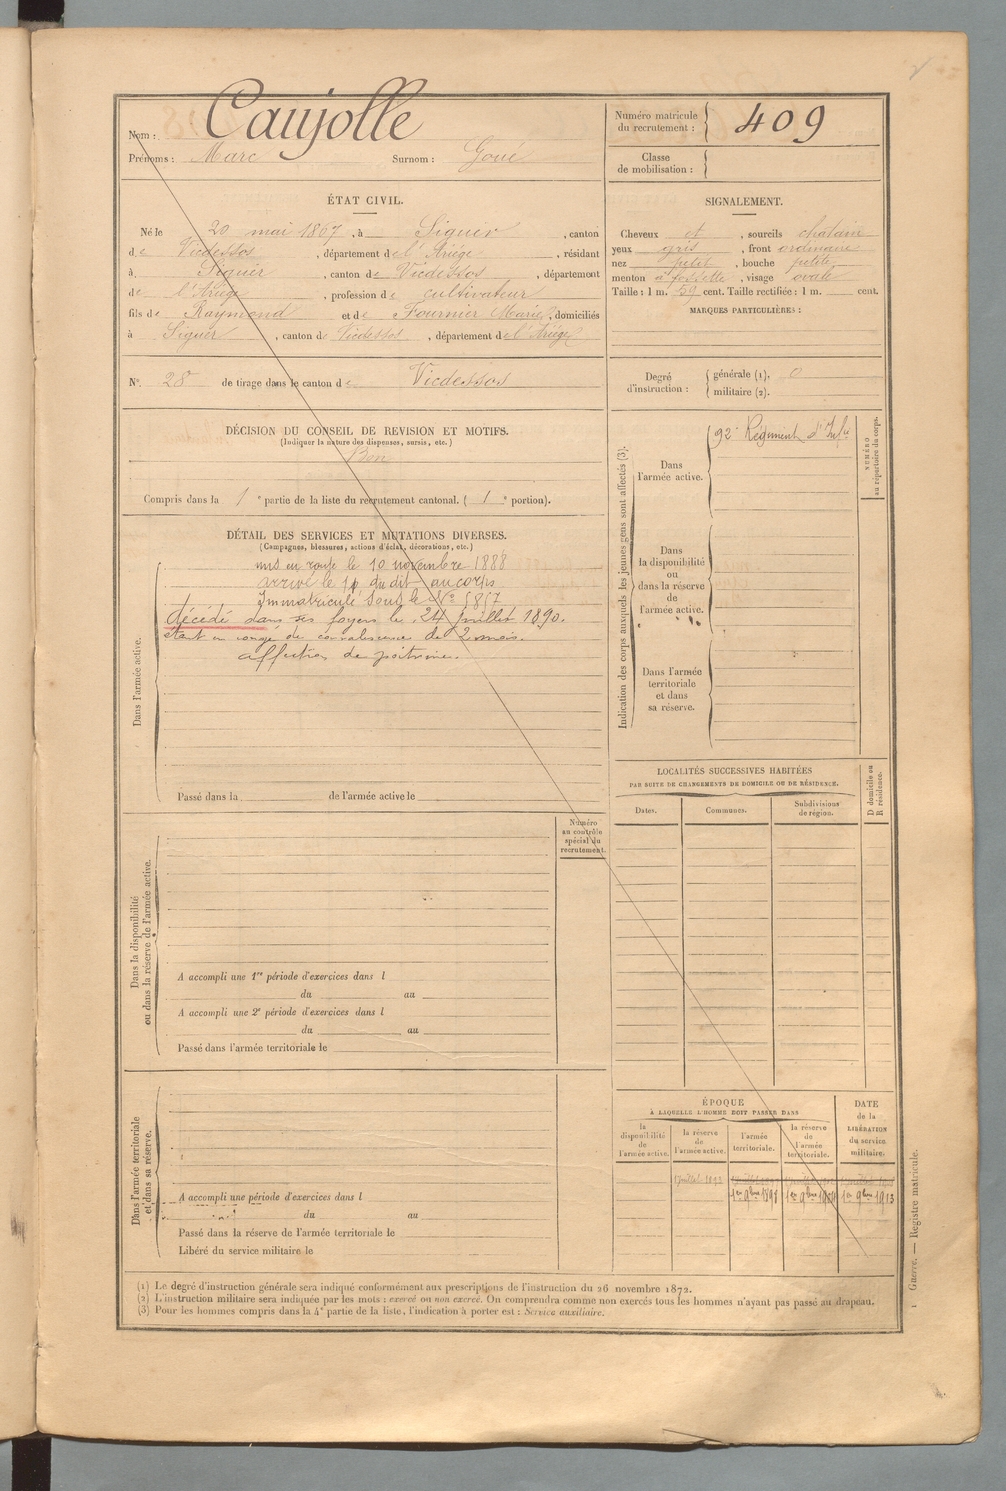 Nom : Caujolle
Prénoms : Marc Surnom : Goué
Numéro matricule du recrutement : 409
Classe de mobilisation :
ÉTAT CIVIL.
Né le 20 mai 1867, à Siguer, canton
de Vicdessos, département de l'Ariège, résidant
à Siguer, canton de Vicdessos, département
de l'Ariège, profession de cultivateur
fils de Raymond et de Fournier Marie, domiciliés
à Siguer, canton de Vicdessos, département de l'Ariège
N° 28 de tirage dans le canton de Vicdessos
SIGNALEMENT.
Cheveux et, sourcils chatain
yeux gris, front ordinaire
nez petit, bouche petite
menton à fossette, visage ovale
Taille : 1 m. 59 cent. Taille rectifiée : 1 m. cent.
MARQUES PARTICULIÈRES :
Degré d'instruction : générale (1). 0
militaire (2).
DÉCISION DU CONSEIL DE REVISION ET MOTIFS.
(Indiquer la nature des dispenses, sursis, etc.)
Bon
Compris dans la 1e partie de la liste du recrutement cantonal. ( 1e portion).
DÉTAIL DES SERVICES ET MUTATIONS DIVERSES.
(Campagnes, blessures, actions d'éclat, décorations, etc.)
Dans l'armée active.
mis en route le 10 novembre 1888
arrivé le dudit au corps
Immatriculé sous le N°
décédé dans ses foyers le 24 Juillet 1890.
étant en congé de convalescence de 2 mois.
affection de poitrine.
Passé dans la de l'armée active le
Indication des corps auxquels les jeunes gens sont affectés (3).
NUMÉRO au répertoire du corps.
Dans l'armée active.
92e Régiment d'Infie
Dans la disponibilité ou dans la réserve de l'armée active.
Dans l'armée territoriale et dans sa réserve.
Numéro au contrôle spécial du recrutement.
Dans la disponibilité ou dans la réserve de l'armée active.
A accompli une 1re période d'exercices dans l
du au
A accompli une 2e période d'exercices dans l
du au
Passé dans l'armée territoriale le
LOCALITÉS SUCCESSIVES HABITÉES
PAR SUITE DE CHANGEMENTS DE DOMICILE OU DE RÉSIDENCE.
D domicile ou R résidence.
Dates. Communes. Subdivisions de région.
Dans l'armée territoriale et dans sa réserve.
A accompli une période d'exercices dans l
du au
Passé dans la réserve de l'armée territoriale le
Libéré du service militaire le
ÉPOQUE
À LAQUELLE L'HOMME DOIT PASSER DANS
la disponibilité de l'armée active.
la réserve de l'armée active.
l'armée territoriale.
la réserve de l'armée territoriale.
DATE de la LIBÉRATION du service militaire.
1er 9bre 1897 1er 9bre 1er 9bre 1913
(1) Le degré d'instruction générale sera indiqué conformément aux prescriptions de l'instruction du 26 novembre 1872.
(2) L'instruction militaire sera indiquée par les mots : exercé ou non exercé. On comprendra comme non exercés tous les hommes n'ayant pas passé au drapeau.
(3) Pour les hommes compris dans la 4e partie de la liste, l'indication à porter est : Service auxiliaire.
Guerre. — Registre matricule.